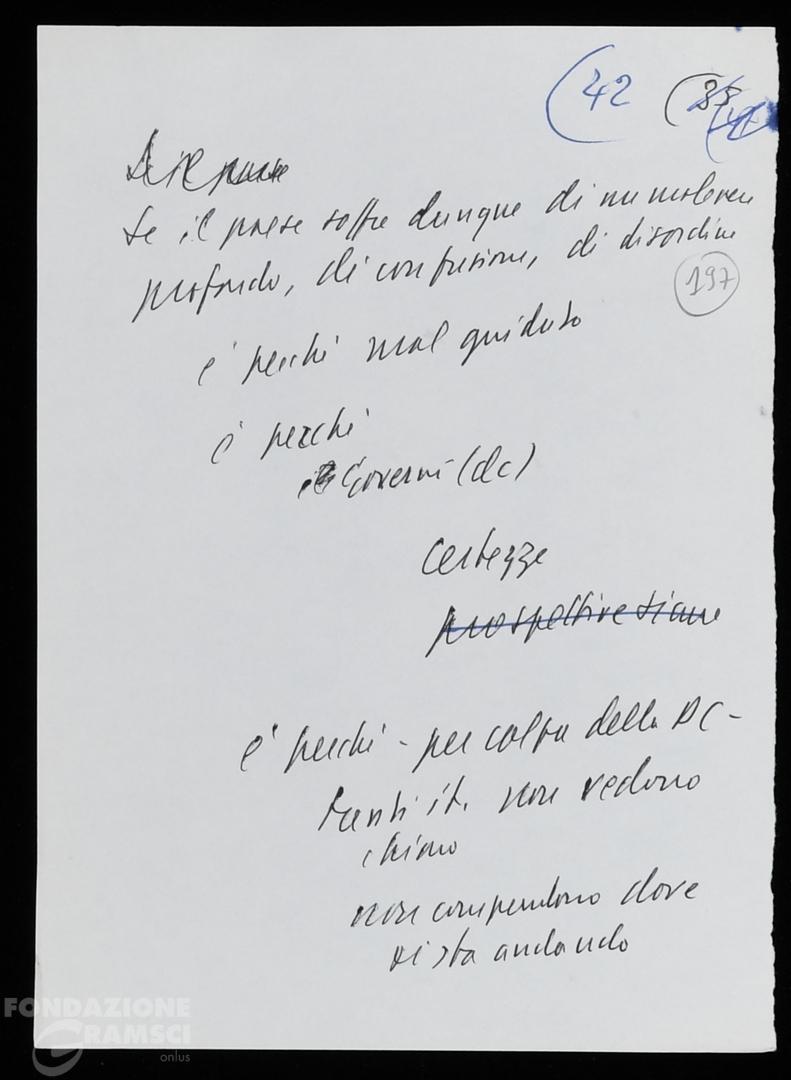 (42 (33
Se il paese
Se il paese soffre dunque di un malessere
profondo, di confusione, di disordine
197
è perché mal guidato
è perché
i Governi (dc)
certezze
prospettive sicure
è perché - per colpa della DC -
tanti it. non vedono
chiaro
non comprendono dove
si sta andando
FONDAZIONE
GRAMSCI
onlus